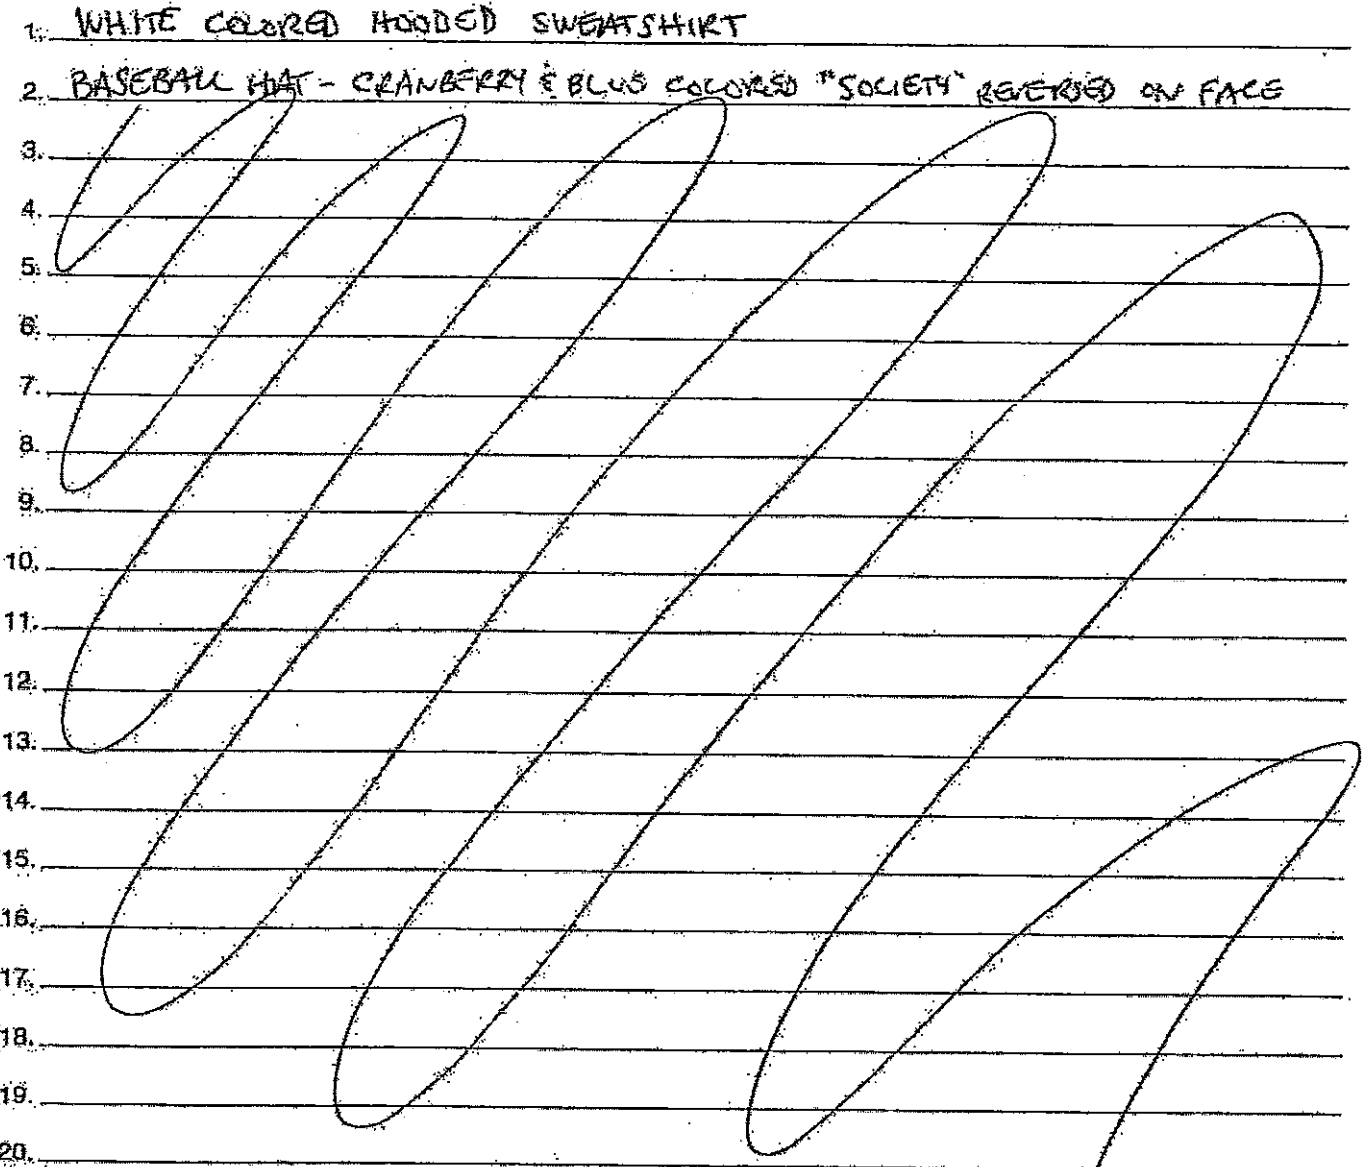 1. WHITE COLORED HOODED SWEATSHIRT
2. BASEBALL HAT - CRANBERRY & BLUE COLORED "SOCIETY" REVERSED ON FACE
3.
4.
5.
6.
7.
8.
9.
10.
11.
12.
13.
14.
15.
16.
17.
18.
19.
20.